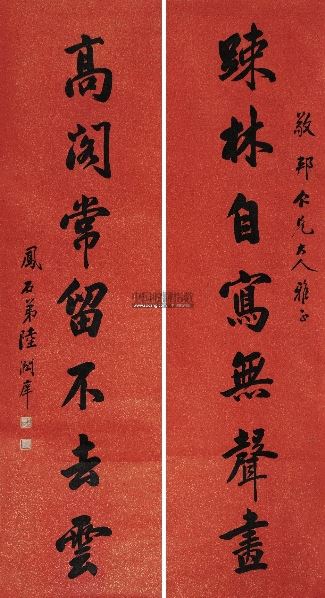 敬邦仁兄大人雅正
疎林自寫無聲畫
高阁常留不去雲
鳳石弟陸潤庠